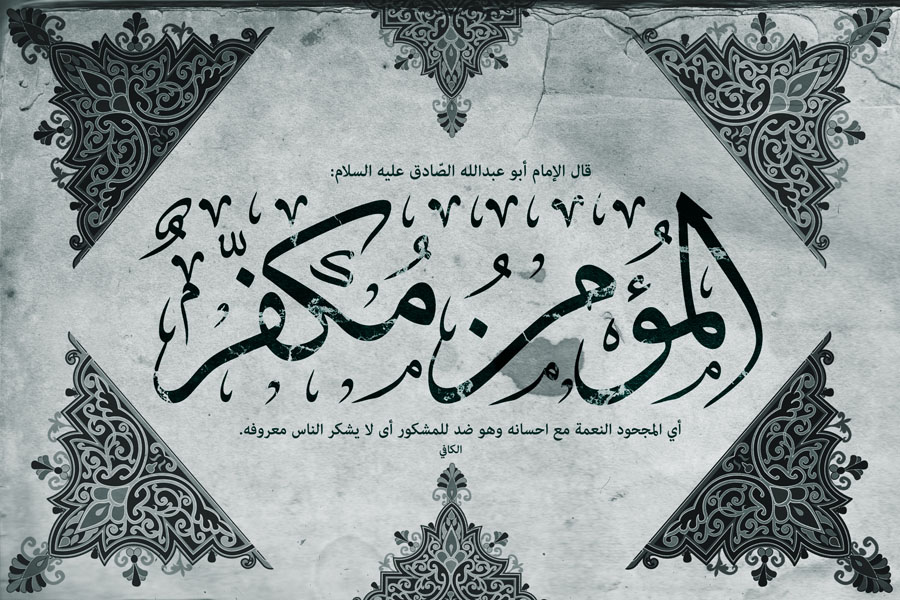 قال الإمام أبو عبدالله الصّادق عليه السلام:
المُؤْمِنُ مُكَفَّرٌ
أي المجحود النعمة مع احسانه وهو ضد للمشكور أى لا يشكر الناس معروفه.
الكافي